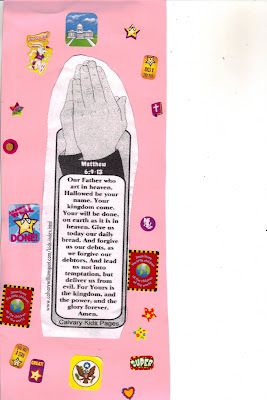 Matthew
6:9-13
Our Father who
art in heaven,
Hallowed be your
name. Your
kingdom come.
Your will be done,
on earth as it is in
heaven. Give us
today our daily
bread. And forgive
us our debts, as
we forgive our
debtors, And lead
us not into
temptation, but
deliver us from
evil. For Yours is
the kingdom, and
the power, and the
glory forever.
Amen.
Calvary Kids Pages
WELL
DONE!
SUPER
GREAT